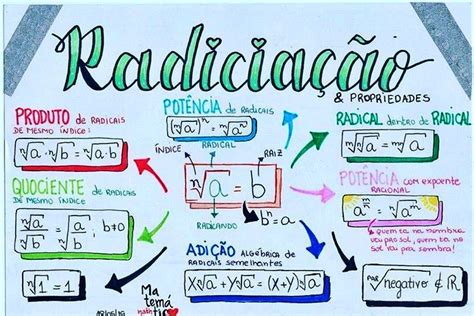 Radiciação
& PROPRIEDADES
PRODUTO de RADICAIS
DE MESMO ÍNDICE:
ⁿ√a · ⁿ√b = ⁿ√a·b
POTÊNCIA de RADICAIS
RADICAL dentro de RADICAL
ÍNDICE
RADICAL
RAIZ
ⁿ√a = b
bⁿ = a
RADICANDO
QUOCIENTE de RADICAIS
DE MESMO ÍNDICE
ⁿ√a / ⁿ√b = ⁿ√(a/b); b≠0
POTÊNCIA com EXPOENTE
RACIONAL
QUEM TÁ NA SOMBRA
VEM PRO SOL, QUEM TÁ NO
SOL VAI PRA SOMBRA!
ADIÇÃO ALGÉBRICA de
RADICAIS SEMELHANTES
X ⁿ√a + Y ⁿ√a = (X+Y) ⁿ√a
ⁿ√1 = 1
Ma
temá
par√negativo ∉ ℝ